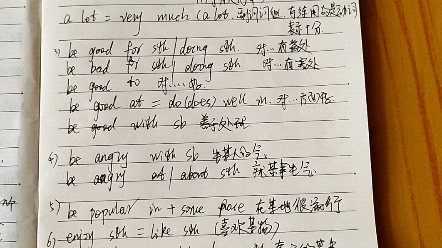 a lot = very much (a lot
3) be good for sth / doing sth. 对...有益处
be bad for sth / doing sth 对...有害处
be good to 对...
be good at = do(does) well in 对...方面
be good with sb 善于处理
4) be angry with sb 生某人的气
be angry at / about sth 就某事生气
5) be popular in + some place 在某地很流行
6) enjoy sth = like sth (喜欢某物)